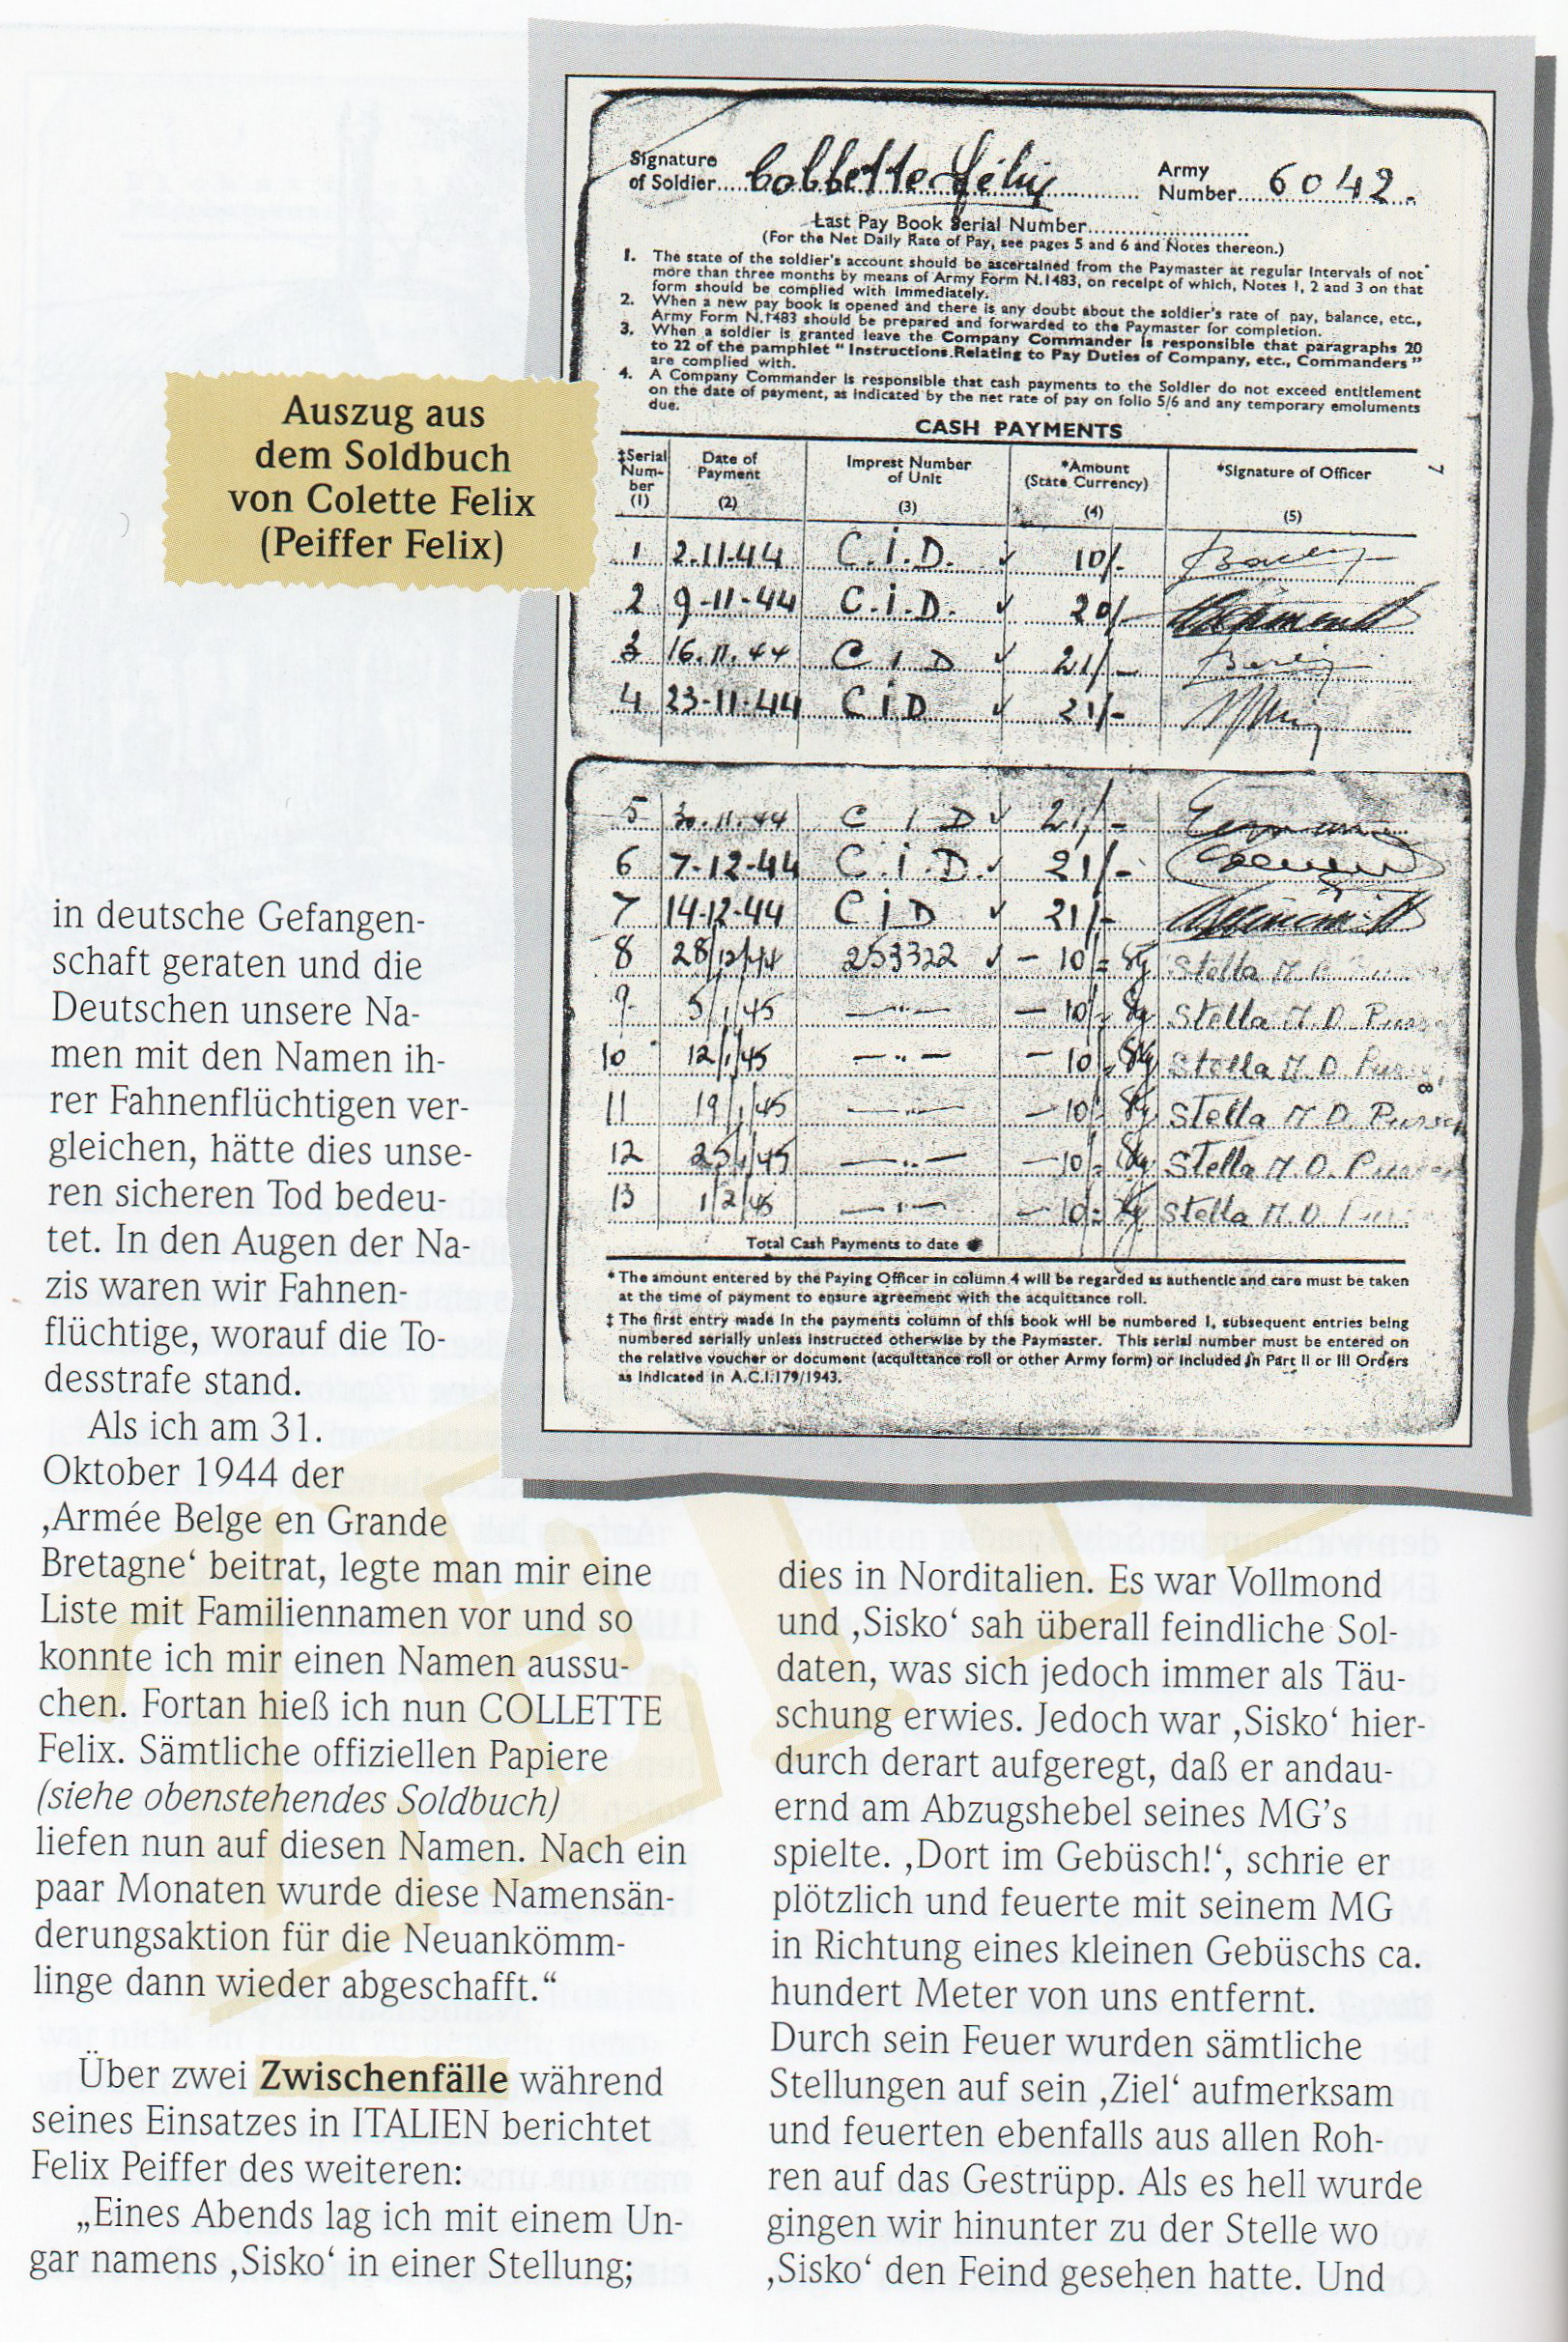 Signature
of Soldier.....Collette Félix............
Army
Number....6042.
Last Pay Book Serial Number........................
(For the Net Daily Rate of Pay, see pages 5 and 6 and Notes thereon.)
1. The state of the soldier's account should be ascertained from the Paymaster at regular intervals of not
more than three months by means of Army Form N.1483, on receipt of which, Notes 1, 2 and 3 on that
form should be complied with immediately.
2. When a new pay book is opened and there is any doubt about the soldier's rate of pay, balance, etc.,
Army Form N.1483 should be prepared and forwarded to the Paymaster for completion.
3. When a soldier is granted leave the Company Commander is responsible that paragraphs 20
to 22 of the pamphlet " Instructions Relating to Pay Duties of Company, etc., Commanders "
are complied with.
4. A Company Commander is responsible that cash payments to the Soldier do not exceed entitlement
on the date of payment, as indicated by the net rate of pay on folio 5/6 and any temporary emoluments
due.
CASH PAYMENTS
7
‡Serial Num- ber (1) Date of Payment (2) Imprest Number of Unit (3) *Amount (State Currency) (4) *Signature of Officer (5)
1 2-11-44 C.I.D. ✓ 10/-
2 9-11-44 C.I.D. ✓ 20/-
3 16.11.44 C I D ✓ 21/-
4 23-11-44 C I D ✓ 21/-
5 30.11.44 C I D ✓ 21/-
6 7-12-44 C.I.D. ✓ 21/-
7 14-12-44 C I D ✓ 21/-
8 28/12/44 253322 ✓ - 10/= Stella M. D.
9 5/1/45 —„— - 10/= Stella M. D.
10 12/1/45 —„— - 10/= Stella M. D.
8
11 19/1/45 —„— - 10/= Stella M. D.
12 25/1/45 —„— - 10/= Stella M. D.
13 1/2/45 —„— - 10/= Stella M. D.
Total Cash Payments to date
* The amount entered by the Paying Officer in column 4 will be regarded as authentic and care must be taken
at the time of payment to ensure agreement with the acquittance roll.
‡ The first entry made in the payments column of this book will be numbered 1, subsequent entries being
numbered serially unless instructed otherwise by the Paymaster. This serial number must be entered on
the relative voucher or document (acquittance roll or other Army form) or included in Part II or III Orders
as indicated in A.C.I.179/1943.
Auszug aus
dem Soldbuch
von Colette Felix
(Peiffer Felix)
in deutsche Gefangen-
schaft geraten und die
Deutschen unsere Na-
men mit den Namen ih-
rer Fahnenflüchtigen ver-
gleichen, hätte dies unse-
ren sicheren Tod bedeu-
tet. In den Augen der Na-
zis waren wir Fahnen-
flüchtige, worauf die To-
desstrafe stand.
Als ich am 31.
Oktober 1944 der
‚Armée Belge en Grande
Bretagne‘ beitrat, legte man mir eine
Liste mit Familiennamen vor und so
konnte ich mir einen Namen aussu-
chen. Fortan hieß ich nun COLLETTE
Felix. Sämtliche offiziellen Papiere
(siehe obenstehendes Soldbuch)
liefen nun auf diesen Namen. Nach ein
paar Monaten wurde diese Namensän-
derungsaktion für die Neuankömm-
linge dann wieder abgeschafft.“
Über zwei Zwischenfälle während
seines Einsatzes in ITALIEN berichtet
Felix Peiffer des weiteren:
„Eines Abends lag ich mit einem Un-
gar namens ‚Sisko‘ in einer Stellung;
dies in Norditalien. Es war Vollmond
und ‚Sisko‘ sah überall feindliche Sol-
daten, was sich jedoch immer als Täu-
schung erwies. Jedoch war ‚Sisko‘ hier-
durch derart aufgeregt, daß er andau-
ernd am Abzugshebel seines MG's
spielte. ‚Dort im Gebüsch!‘, schrie er
plötzlich und feuerte mit seinem MG
in Richtung eines kleinen Gebüschs ca.
hundert Meter von uns entfernt.
Durch sein Feuer wurden sämtliche
Stellungen auf sein ‚Ziel‘ aufmerksam
und feuerten ebenfalls aus allen Roh-
ren auf das Gestrüpp. Als es hell wurde
gingen wir hinunter zu der Stelle wo
‚Sisko‘ den Feind gesehen hatte. Und